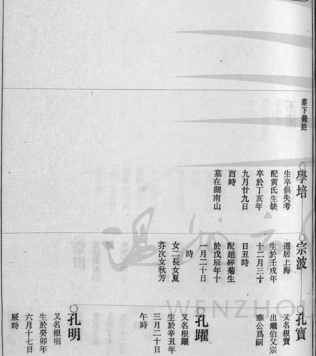 寮下鍾姓
學培
生卒俱失考
配黃氏生缺
卒於丁亥年
九月廿九日
酉時
墓在湖南山
宗波
遷居上海
生於壬戌年
十二月三十
日丑時
配趙碎菊生
於戊辰年十
一月二十日
時
女二長女夏
芬次女秋芳
孔寶
又名根寶
出繼伯父宗
華公爲嗣
孔躍
又名根躍
生於辛丑年
三月二十日
午時
孔明
又名根明
生於癸卯年
六月十七日
辰時
WENZHOU